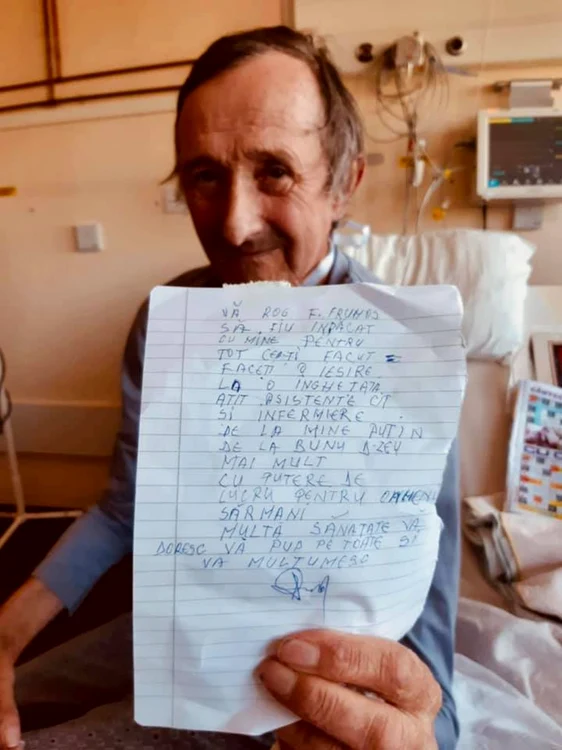 VĂ ROG F. FRUMOS
SĂ FIU INPĂCAT
CU MINE PENTRU
TOT CEAȚI FĂCUT =
FACEȚI O IEȘIRE
LA O INGHETATA
ATIT ASISTENTE CIT
SI INFERMIERE.
DE LA MINE PUTIN
DE LA BUNU D-ZEU
MAI MULT
CU PUTERE DE
LUCRU PENTRU OAMENII
SĂRMANI
MULTĂ SANATATE VĂ
DORESC VĂ PUP PE TOATE SI
VA MULTUMESC